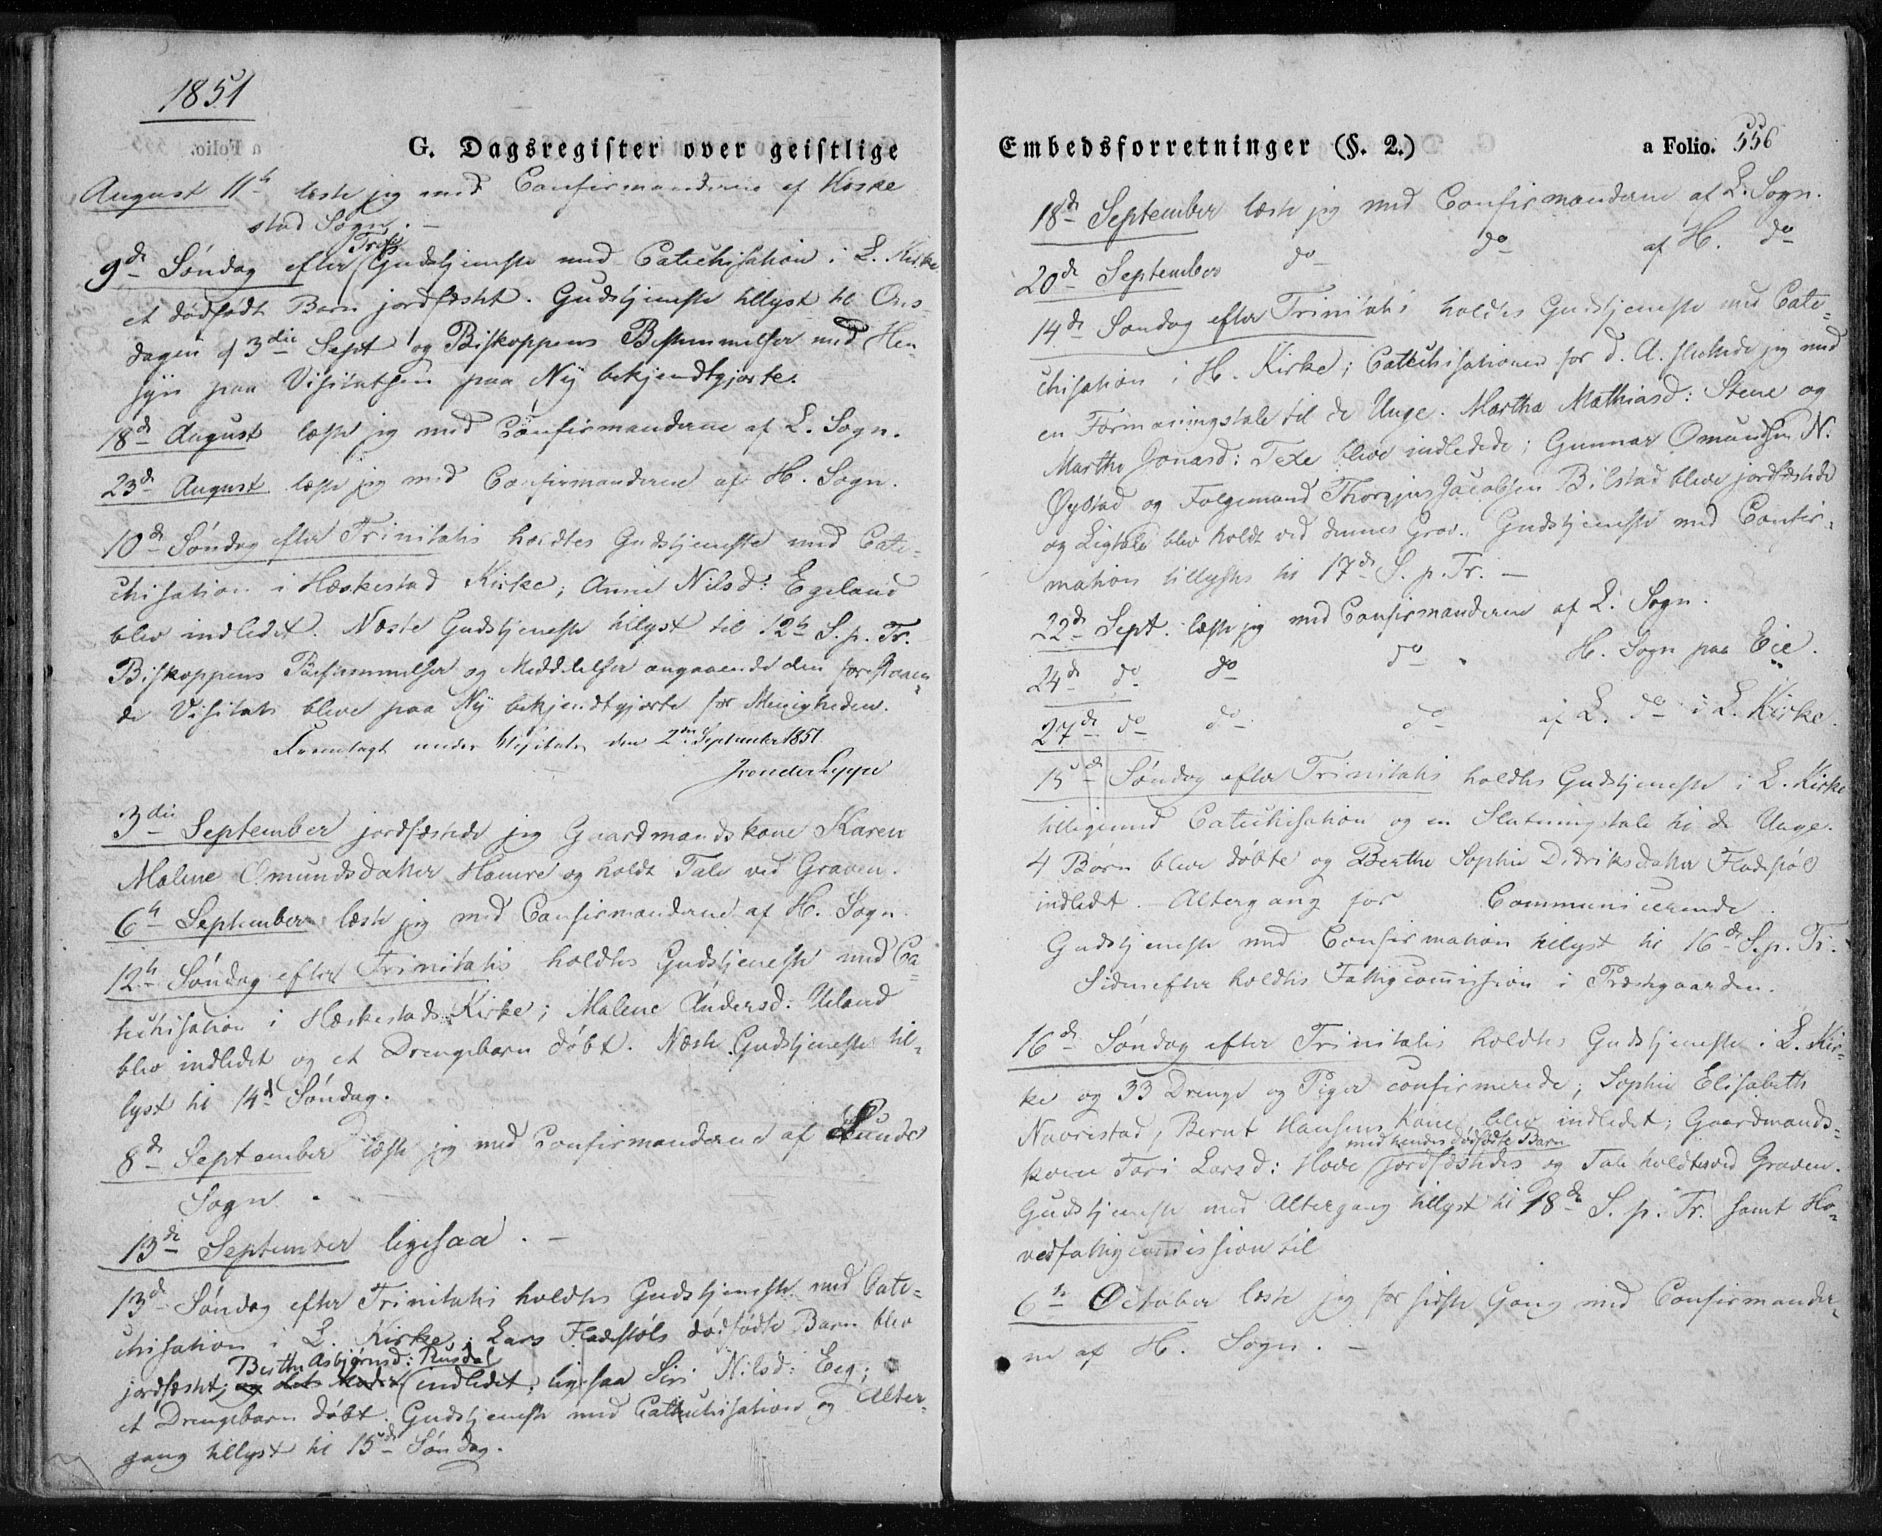 1851
G. Dagsregister over geistlige
August 11te læste jeg med Confirmanderne af Heske
stad Sogn. –
9de Søndag efter Trin. Gudstjeneste med Catechisation i L. Kirke
et dødfødt Barn jordfæstet. Gudstjeneste tillyst til Ons-
dagen d 3die Sept og Biskoppens Bestemmelser med Hen-
syn paa Visitatsen paa Ny bekjendtgjorte.
18de August læste jeg med Confirmanderne af L. Sogn.
23de August læste jeg med Confirmanderne af H. Sogn.
10de Søndag efter Trinitatis holdtes Gudstjeneste med Cate-
chisation i Heskestad Kirke; Anne Nilsd: Egeland
blev indledet. Næste Gudstjeneste tillyst til 12te S. p. Tr.
Biskoppens Bestemmelser og Meddelelser angaaende den forestaaen-
de Visitats bleve paa Ny bekjendtgjorte for Menigheden.
Fremlagt under Visitats den 2den September 1851.
3die September jordfæstede jeg Gaardmandskone Karen
Malene Omundsdatter Hamre og holdt Tale ved Graven.
6te September læste jeg med Confirmanderne af H. Sogn.
12te Søndag efter Trinitatis holdtes Gudstjeneste med Ca-
techisation i Heskestads Kirke; Malene Andersd: Ueland
blev indledet og et Drengebarn døbt. Næste Gudstjeneste til-
lyst til 14de Søndag.
8de September læste jeg med Confirmanderne af Lunde
Sogn.
13de September ligesaa. –
13de Søndag efter Trinitatis holdtes Gudstjeneste med Cate-
chisation i L. Kirke; Lars Fladstøls dødfødte Barn blev
jordfæstet; Berthe Asbjørnsd: Rusdal indledet; ligesaa Siri Nilsd: Eeg;
et Drengebarn døbt. Gudstjeneste med Catechisation og Alter-
gang tillyst til 15de Søndag.
Embedsforretninger (§. 2.)
a Folio. 556
18de September læste jeg med Confirmanderne af L. Sogn.
20de September do do af H. do
14de Søndag efter Trinitatis holdtes Gudstjeneste med Cate-
chisation i H. Kirke; Catechisationen for d. A. sluttede jeg med
en Formaningstale til de Unge. Martha Mathiasd: Stene og
Marthe Jonasd: Texe bleve indledede; Gunnar Omundsen N.
Øystad og Følgemand Thorgjus Jacobsen Bilstad bleve jordfæstede
og Ligtale blev holdt ved dennes Grav. Gudstjeneste med Confir-
mation tillystes til 17de S. p. Tr. –
22de Sept. læste jeg med Confirmanderne af L. Sogn.
24de do do do H. Sogn paa Eie.
27de do do do af L. do i L. Kirke.
15de Søndag efter Trinitatis holdtes Gudstjeneste i L. Kirke
tilligemed Catechisation og en Slutningstale til de Unge.
4 Børn bleve døbte og Berthe Sophie Didriksdatter Fladstøl
indledet. Altergang for Communicerende.
Gudstjeneste med Confirmation tillyst til 16de S. p. Tr.
Sidenefter holdtes Fattigcommission i Præstgaarden.
16de Søndag efter Trinitatis holdtes Gudstjeneste i L. Kir-
ke og 33 Drenge og Piger confirmerede; Sophie Elisabeth
Navrestad, Bernt Hansens Kone, blev indledet; Gaardmands-
kone Tori Larsd: Hove med hendes dødfødte Barn jordfæstedes og Tale holdtes ved Graven.
Gudstjeneste med Altergang tillyst til 18de S. p. Tr. samt Ho-
vedfattigcommission til
6te October læste jeg for sidste Gang med Confirmander-
ne af H. Sogn. –